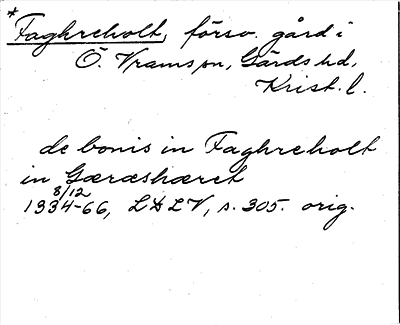 *Faghreholt, försv. gård i
Ö. Vrams sn, Gärds hd,
Krist. l.
de bonis in Faghreholt
in Gæræshæret
8/12
1334-66, LDLV, s. 305. orig.